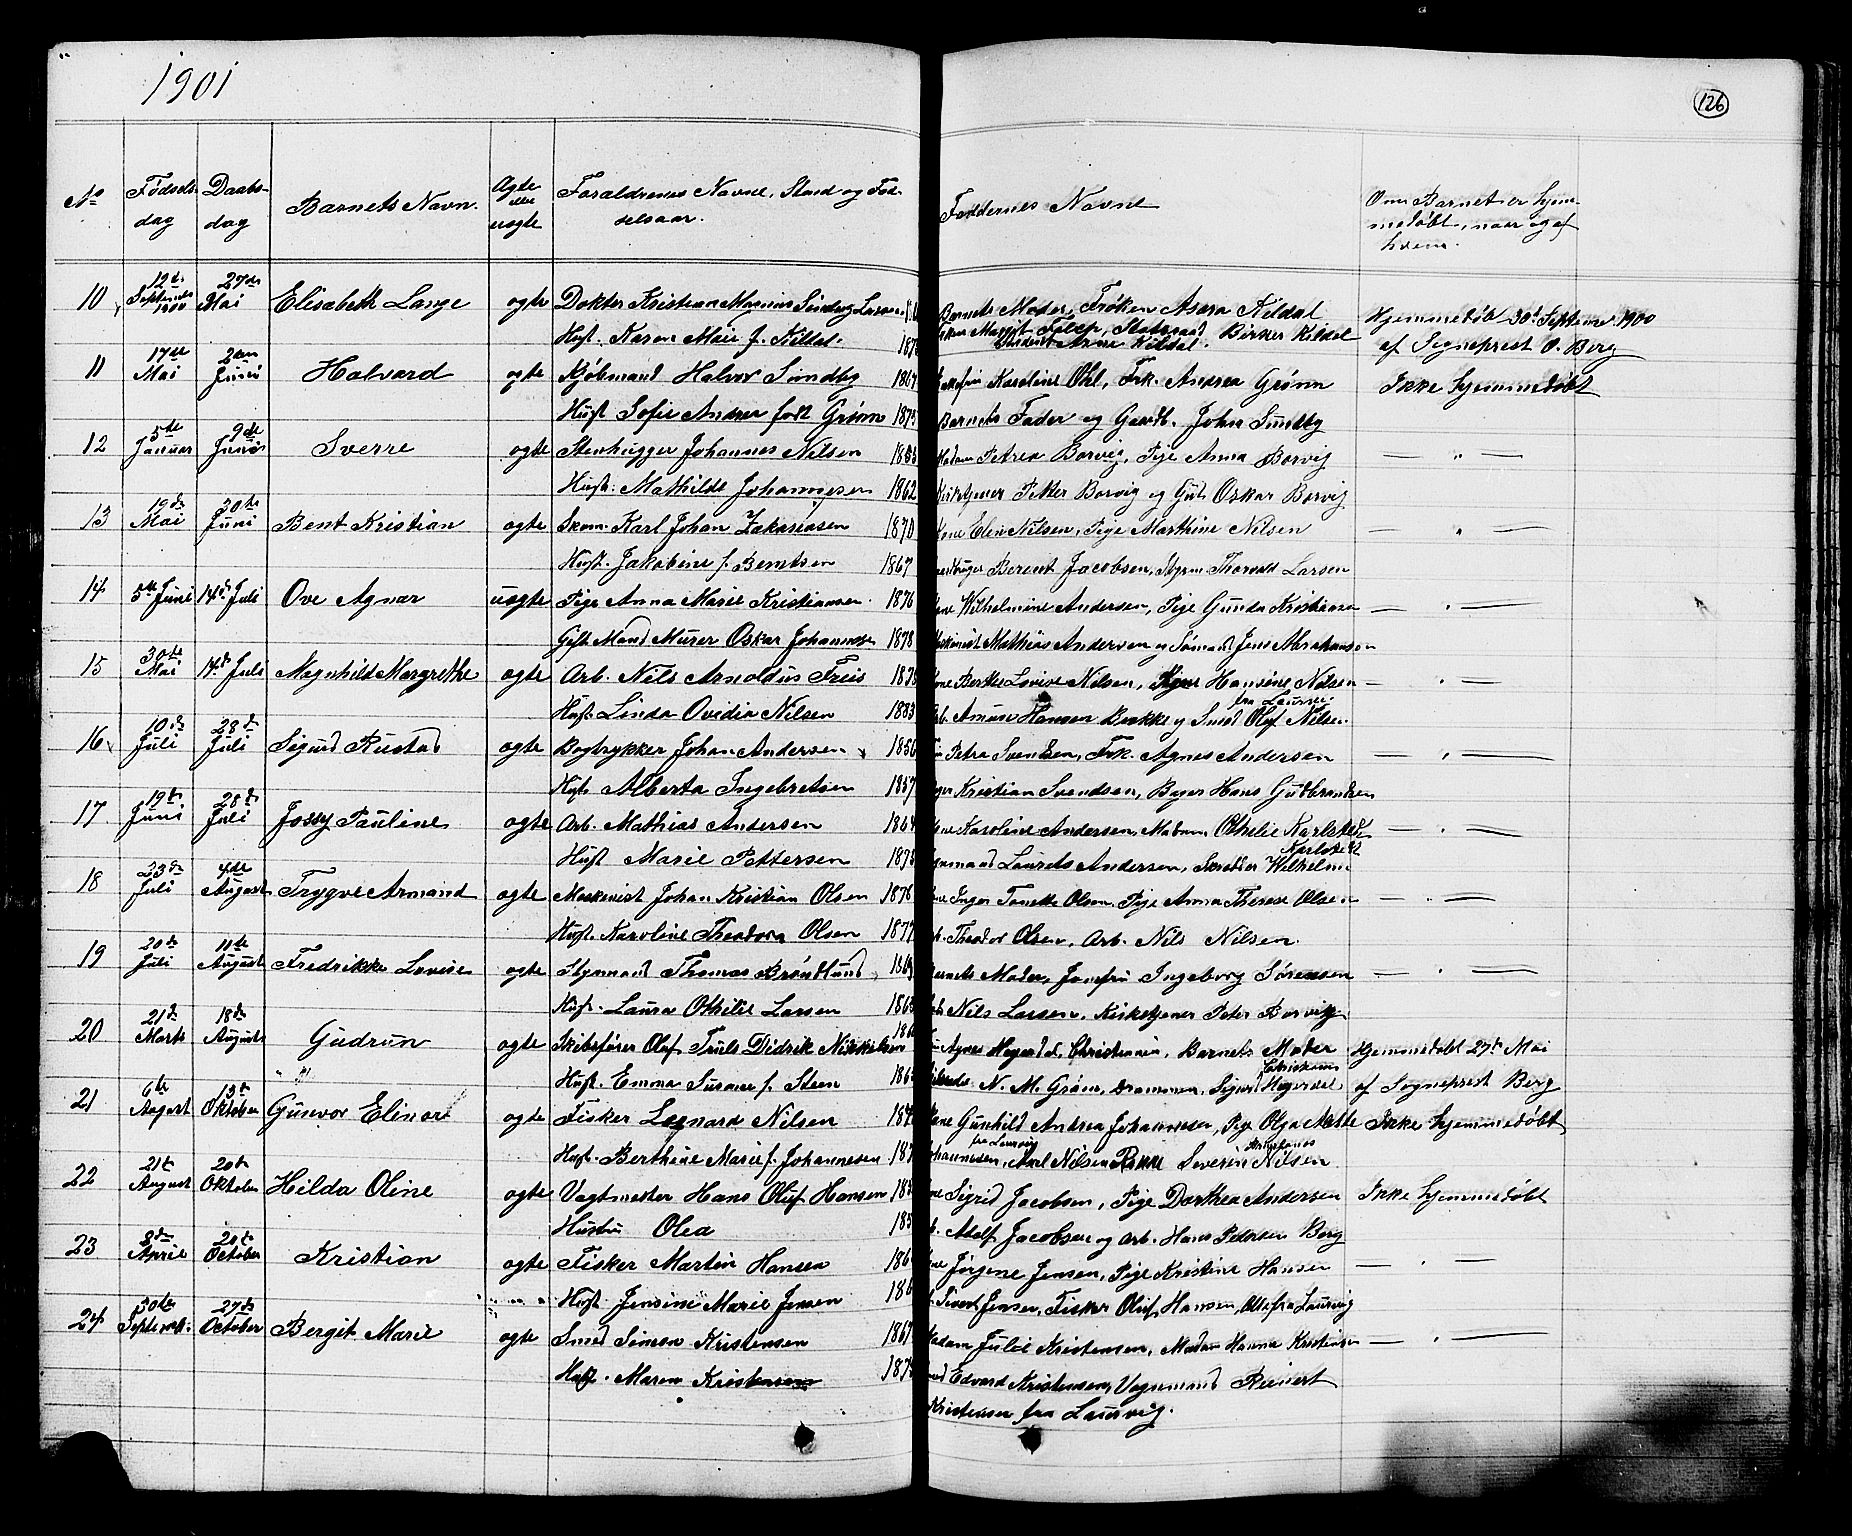 1901
126
No
Fødsels-
dag
Daabs-
dag
Barnets Navn.
Ægte
eller
uægte
Forældrenes Navne, Stand og Fød-
selsaar.
Faddernes Navne
Om Barnet er hjem-
medøbt, naar og af
hvem.
10 12te Septembr 1900 27de Mai Elisabeth Lange ægte Doktor Kristian Magnus Sundbey Larsen
Barnets Moder, Frøken Asora Kildal
Hjemmedøbt 30t Septembr 1900
Hust. Karen Marie f. Kildal
Student Arne Kildal. Birker Kildal
af Sogneprest O. Berg
11 17de Mai 2den Juni Halvard ægte Kjøbmand Halvor Sundby 1867
Karoline Ohl, Frk. Andrea Grønn
Ikke hjemmedøbt
Hust Sofie Andrea født Grønn 1875
Barnets Fader og Gaardb. John Sundby
12 5te Januar 9de Juni Sverre ægte Stenhugger Johannes Nilsen
Madam Petrea Borvig, Pige Anna Borvig
— " —
Hust. Mathilde Johannesen 1862
Kirketjener Peter Borvig og Gut Oskar Borvig
13 19de Mai 30te Juni Bent Kristian ægte Skom. Karl Johan Zakariasen 1870
Kone Elen Nilsen, Pige Marthine Nilsen
— " —
Hust. Jakobine f. Berntsen 1867
Berent Jacobsen, Styrm. Thorvald Larsen
14 5te Juni 14d Juli Ove Agnar uægte Pige Anna Marie Kristiansen 1876
Kone Wilhelmine Andersen, Pige Gunda Kristiansen
— " —
Gift Mand Murer Oskar Johannesen 1878
Maskinist Mathias Andersen og Sømand Jens Abrahamsen
15 30te Mai 14d Juli Magnhild Margrethe ægte Arb. Nils Arnoldus Friis
Kone Berthe Lovise Nilsen, Hansine Nilsen
— " —
fra Laurvig
Hust. Linda Ovidia Nilsen 1883
Arb. Amund Hansen Bakke og Smed Olaf Nilsen
16 10de Juli 28d Juli Sigurd Rustad ægte Bogtrykker Johan Andersen 1856
Petra Svendsen, Frk. Agnes Andersen
— " —
Hust. Alberta Ingebretsen 1857
Kristian Svendsen, Bager Hans Gudbrandsen
17 19de Juni 28d Juli Jossy Pauline ægte Arb. Mathias Andersen 1864
Kone Karoline Andersen, Madam Othelie Karlsted
— " —
Hust Marie Pettersen 1873
Laurits Andersen, Skrædder Wilhelm
Karlsted
18 23de Juli 4de August Trygve Armand ægte Maskinist Johan Kristian Olsen 1876
Kone Inger Tonette Olsen, Pige Anna Therese Olsen
— " —
Hust. Karoline Theodora Olsen 1877
Arb. Theodor Olsen, Arb. Nils Nilsen
19 20de Juli 11te August Fredrikke Lovise ægte Styrmand Thomas Brøndlund
Barnets Moder, Jomfru Ingeborg Sørensen
— " —
Hust. Laura Othilie Larsen 1863
Nils Larsen, Kirketjener Peter Borvig
20 21de Marts 18de August Gudrun ægte Skibsfører Olaf Truls Didrik Nikkelsen
Agnes Høgerdal, Christiania, Barnets Moder
Hjemmedøbt 27de Mai
Hust. Emma Susane f. Steen
N. M. Grøm, Drammen, Sigurd Høgerdal
Christiania
af Sogneprest Berg
21 6te August 13de Oktober Gunvor Elinore ægte Fisker Leonard Nilsen
Kone Gunhild Andrea Johannesen, Pige Olga Mette
Ikke hjemmedøbt
Hust. Berthine Marie f. Johannesen
fra Laurvig
Johannesen, Axel Nilsen Severin Nilsen
22 21te August 20de Oktober Hilda Oline ægte Vagtmester Hans Oluf Hansen
Sigrid Jacobsen, Pige Dorthea Andersen
Ikke hjemmedøbt
Hustru Olea
Adolf Jacobsen og Arb. Hans Pedersen Berg
23 8de April 20de October Kristian ægte Fisker Martin Hansen
Jørgine Jensen, Pige Kristine Hansen
— " —
Hust. Jensine Marie Jensen
Sivert Jensen, Fisker Oluf Hansen, Alle fra Laurvig
24 30te Septembr. 27de October Bergit Marie ægte Smed Simon Kristensen 1867
Madam Julie Kristensen, Madam Hanna Kristensen
— " —
Hust. Maren Kristensen
Edvard Kristensen, Vognmand Reinert
Kristensen fra Laurvig.